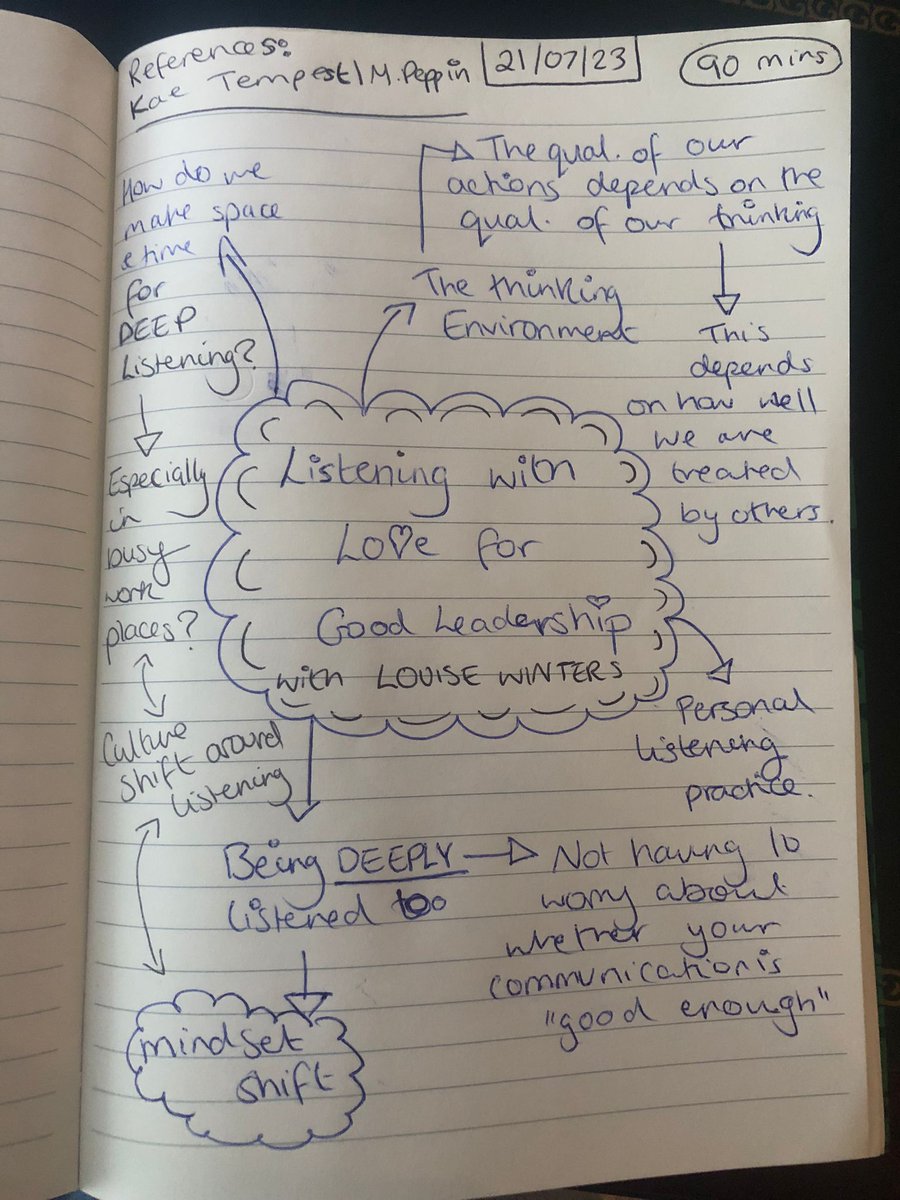 References:
Kae Tempest | M. Peppin
21/07/23
90 mins
How do we
make space
& time
for
DEEP
Listening?
Especially
in
busy
work
places?
Culture
shift around
listening
The qual. of our
actions depends on the
qual. of our thinking
This
depends
on how well
we are
treated
by others.
The thinking
Environment
Listening with
Love for
Good Leadership
with LOUISE WINTERS
Personal
listening
practice.
Being DEEPLY
listened too
Not having to
worry about
whether your
communication is
"good enough"
mindset
shift